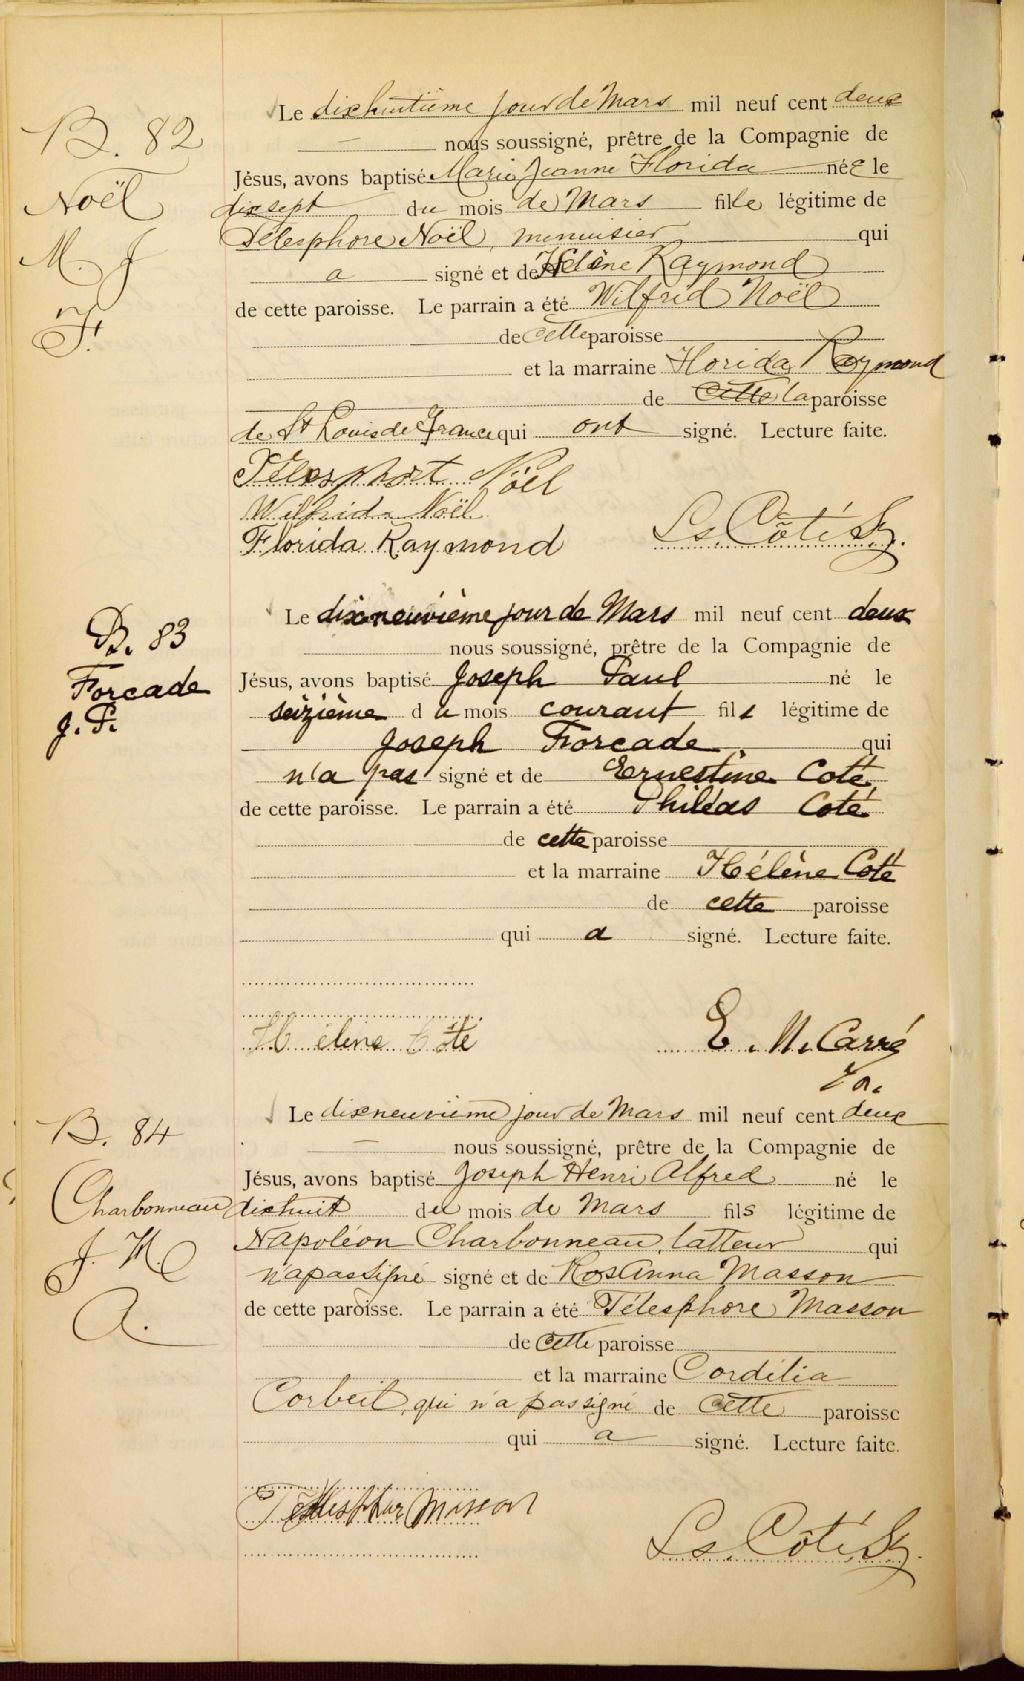 B. 82
Noël
M. J
F.
Le dixhuitième jour de Mars mil neuf cent deux
nous soussigné, prêtre de la Compagnie de
Jésus, avons baptisé Marie Jeanne Florida née le
dixsept du mois de Mars fille légitime de
Télesphore Noël, menuisier qui
a signé et de Hélène Raymond
de cette paroisse. Le parrain a été Wilfrid Noël
de cette paroisse
et la marraine Florida Raymond
de cette la paroisse
de St Louis de France qui ont signé. Lecture faite.
Télesphort Noël
Wilfrid Noël
Florida Raymond Ls. Côté, Sj.
B. 83
Forcade
J. P.
Le dixneuvième jour de Mars mil neuf cent deux
nous soussigné, prêtre de la Compagnie de
Jésus, avons baptisé Joseph Paul né le
seizième du mois courant fils légitime de
Joseph Forcade qui
n'a pas signé et de Ernestine Coté
de cette paroisse. Le parrain a été Philéas Coté
de cette paroisse
et la marraine Hélène Coté
de cette paroisse
qui a signé. Lecture faite.
Hélène Côté E. M. Carré
B. 84
Charbonneau
J. H.
A.
Le dixneuvième jour de Mars mil neuf cent deux
nous soussigné, prêtre de la Compagnie de
Jésus, avons baptisé Joseph Henri Alfred né le
dixhuit du mois de Mars fils légitime de
Napoléon Charbonneau, latteur qui
n'a pas signé signé et de Rosanna Masson
de cette paroisse. Le parrain a été Télesphore Masson
de cette paroisse
et la marraine Cordélia
Corbeil, qui n'a pas signé de cette paroisse
qui a signé. Lecture faite.
Masson
Ls. Côté, Sj.